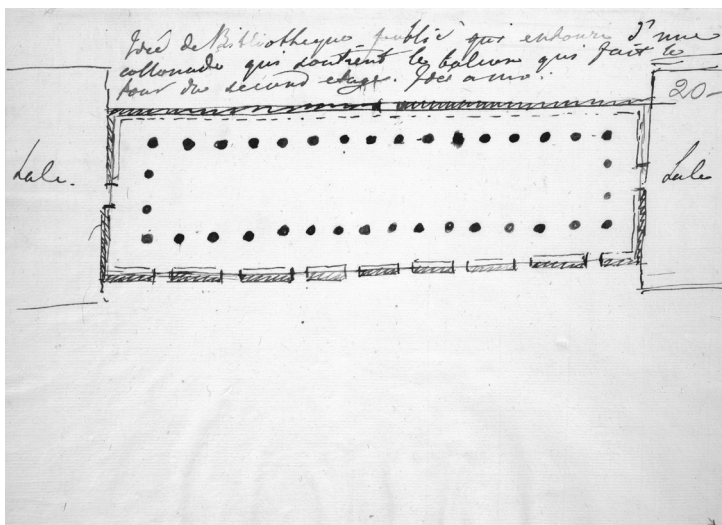 Ideé de Bibliotheque public qui entoure d'une
collonade qui soutient le balcon qui fait le
tour du second etage. Idee a moi.
20-
Sale.
Sale